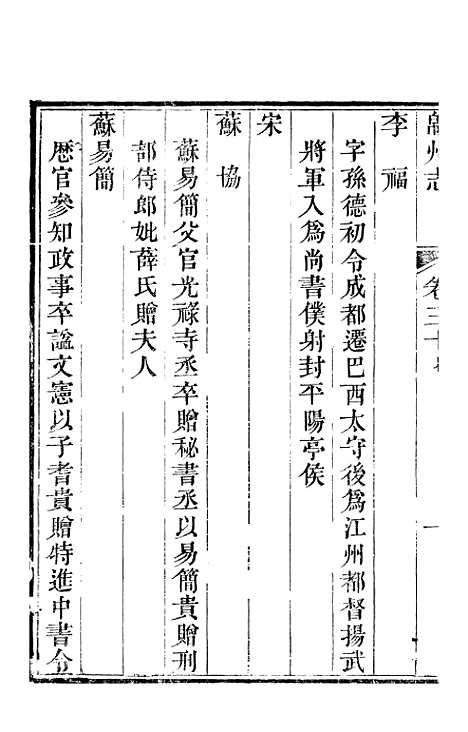 綿州志 卷三十 一
李福
字孫德初令成都遷巴西太守後為江州都督揚武
將軍入為尚書僕射封平陽亭侯
宋
蘇協
蘇易簡父官光祿寺丞卒贈秘書丞以易簡貴贈刑
部侍郎妣薛氏贈夫人
蘇易簡
歷官參知政事卒諡文憲以子耆貴贈特進中書令